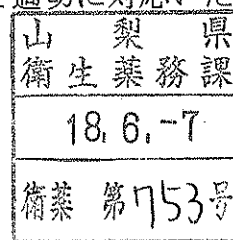 適切に対応いた
山梨県
衛生薬務課
18.6.-7
衛薬 第753号